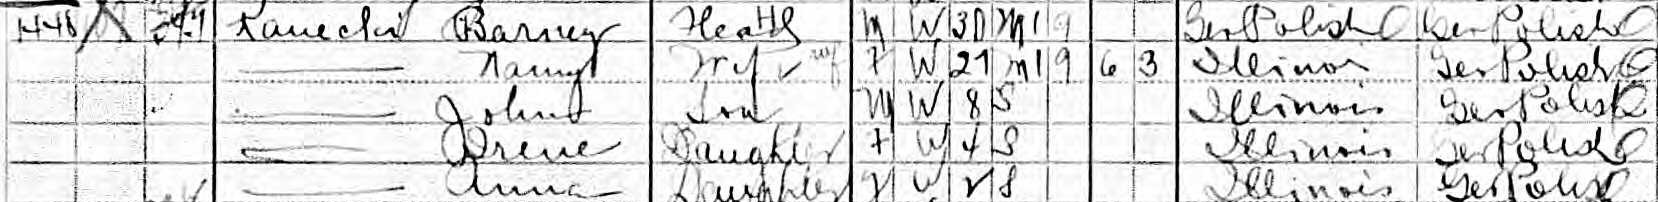 1448 Kanecki Barney Head M W 30 M1 9 Ger Polish Ger Polish
Wife F W 27 M1 9 6 3 Illinois Ger Polish
John Son M W 8 S Illinois Ger Polish
Irene Daughter F W 4 S Illinois Ger Polish
Anna Daughter F W 2 S Illinois Ger Polish